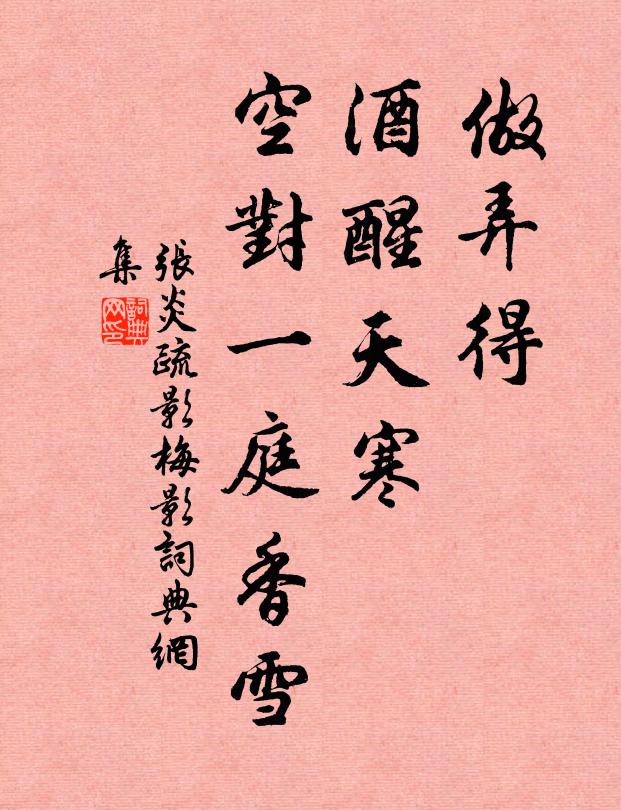 做弄得
酒醒天寒
空對一庭香雪
張炎疏影梅影詞典網
集
詞典
网印